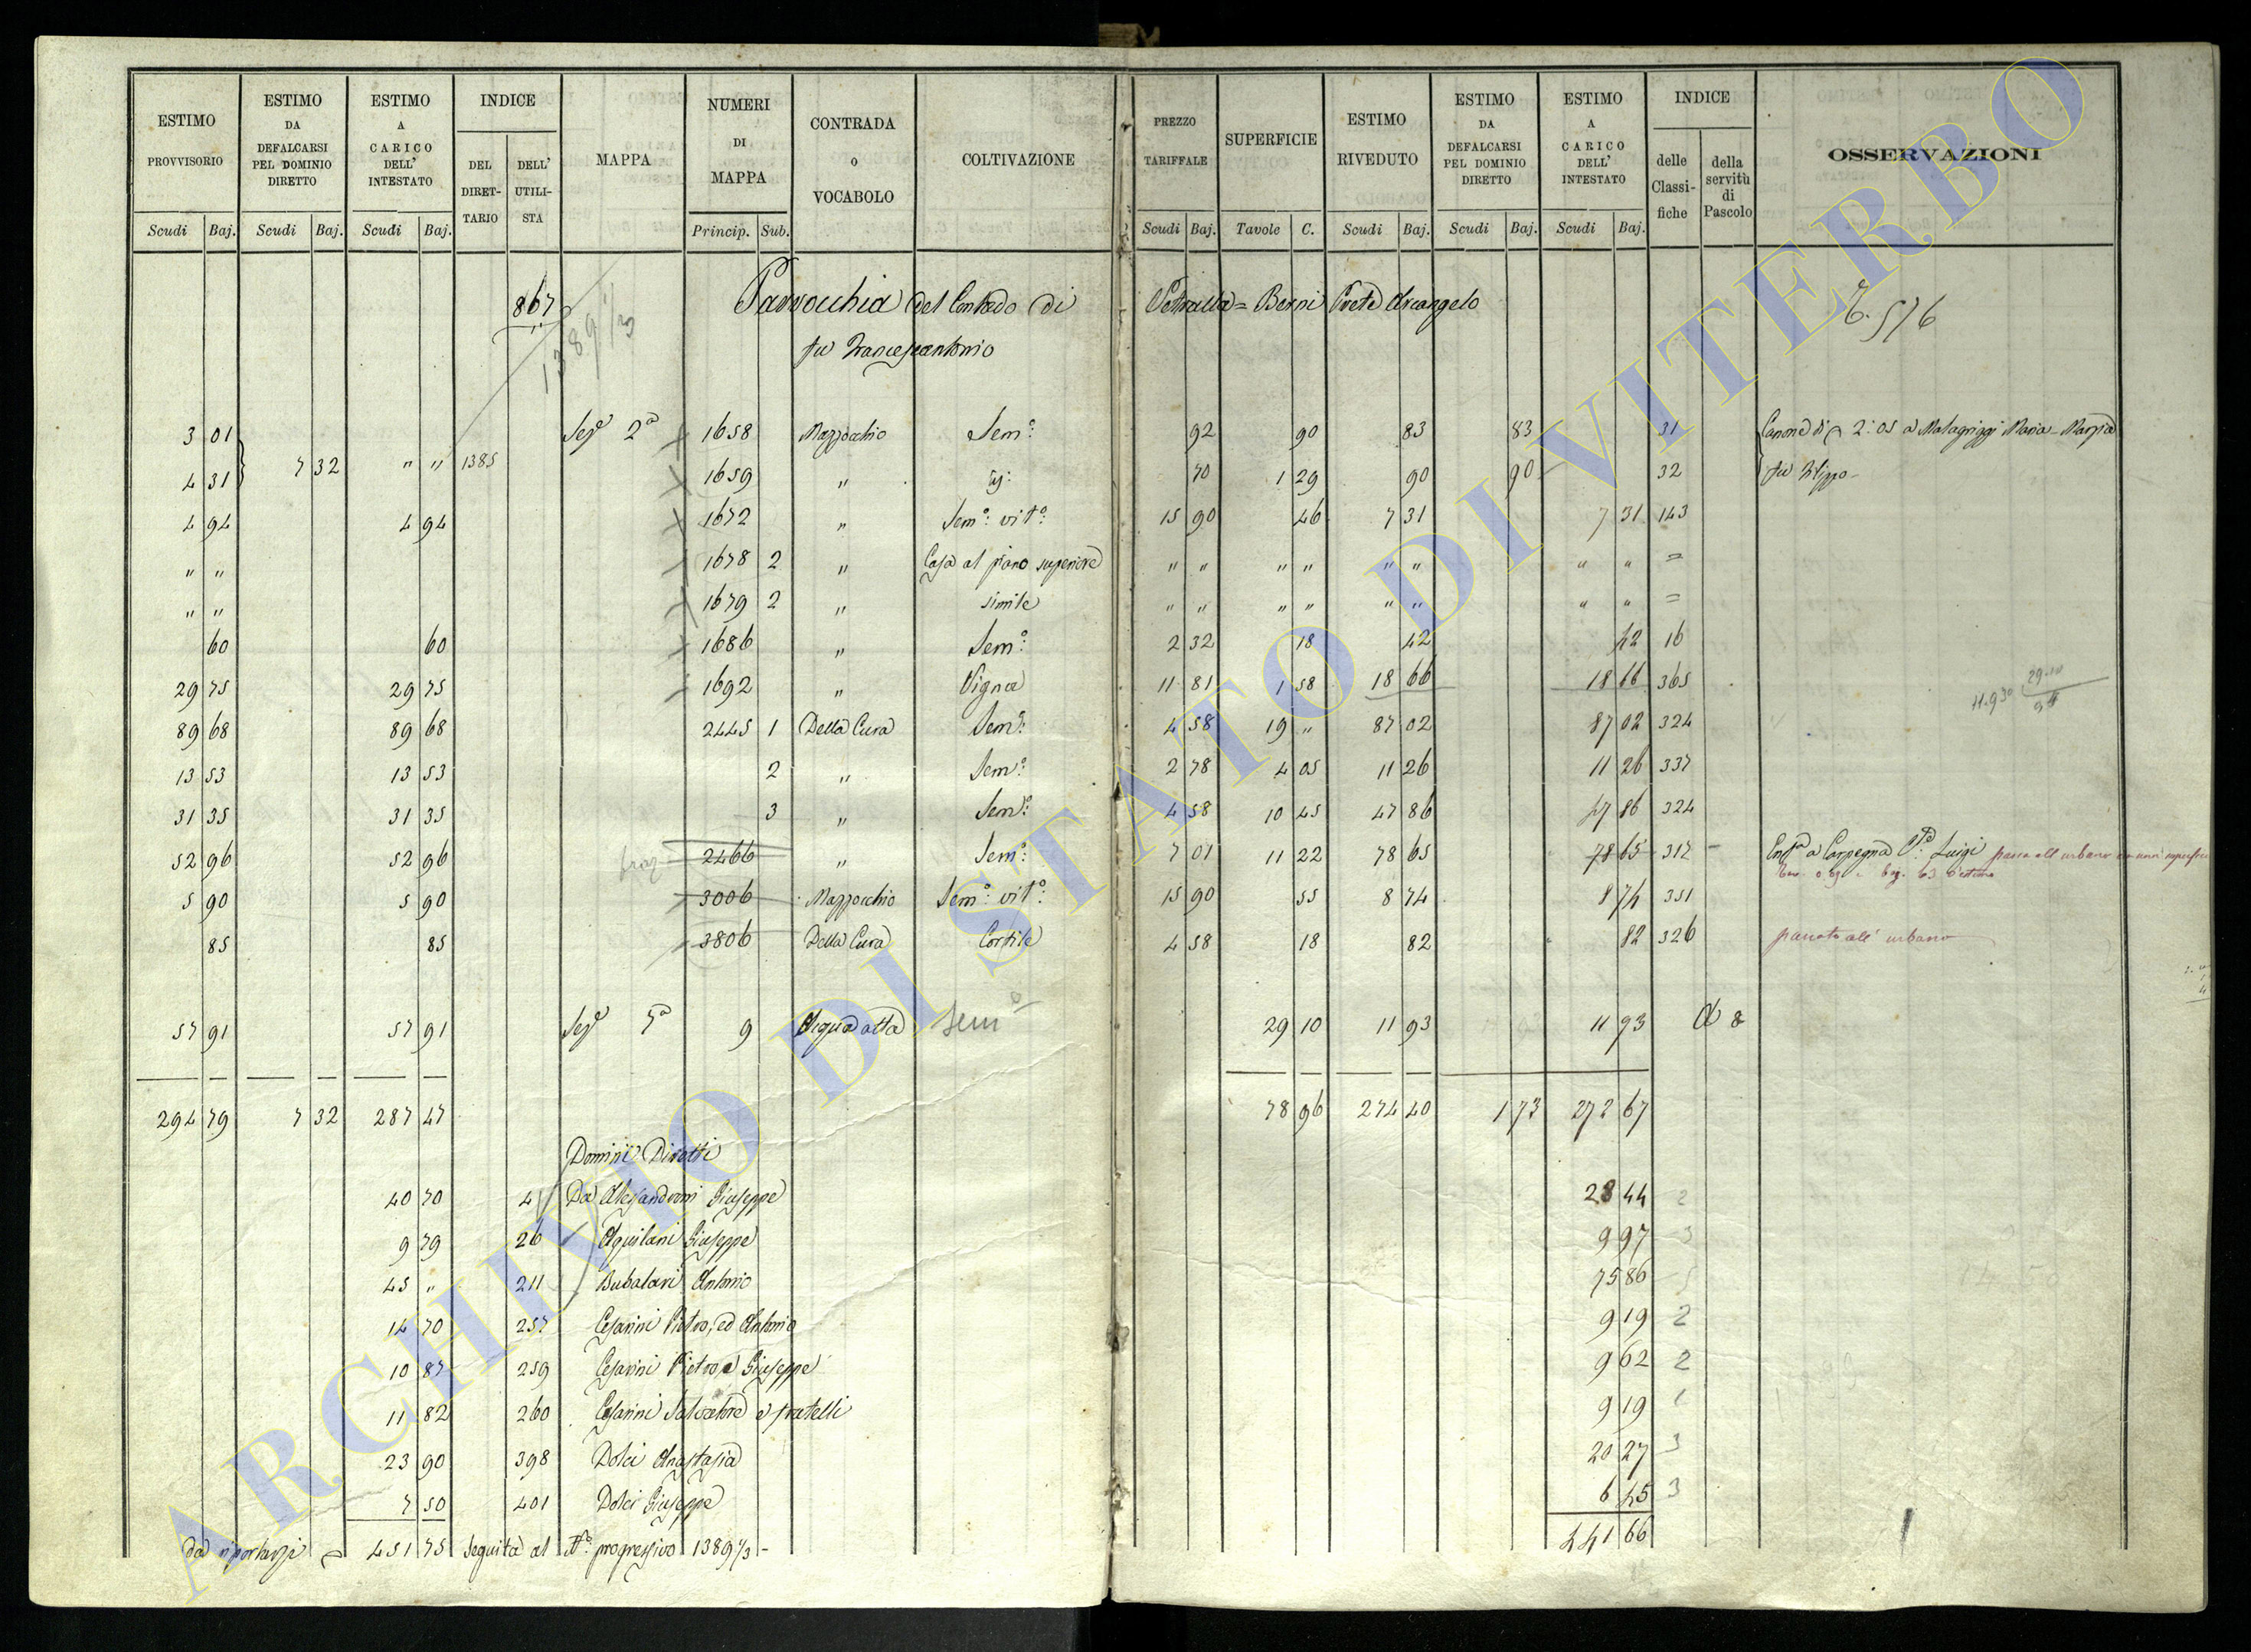 ESTIMO PROVVISORIO
ESTIMO DA DEFALCARSI PEL DOMINIO DIRETTO
ESTIMO A CARICO DELL' INTESTATO
INDICE
DEL DIRET-TARIO
DELL' UTILI-STA
MAPPA
NUMERI DI MAPPA
CONTRADA O VOCABOLO
COLTIVAZIONE
PREZZO TARIFFALE
SUPERFICIE
ESTIMO RIVEDUTO
ESTIMO DA DEFALCARSI PEL DOMINIO DIRETTO
ESTIMO A CARICO DELL' INTESTATO
INDICE
delle Classi-fiche
della servitù di Pascolo
OSSERVAZIONI
Scudi Baj. Scudi Baj. Scudi Baj. Princip. Sub. Scudi Baj. Tavole C. Scudi Baj. Scudi Baj. Scudi Baj.
867 Parrocchia del Contado di Vetralla = Berni Prete Arcangelo
1389 1/3 fu Francescantonio
3 01 Sez.e 2a 1658 Mazzocchio Sem.o: 92 90 83 83 31 Canone di 2:05 a Malagrizzi Maria-Marzia
7 32 " " 1385
4 31 1659 " 70 1 29 90 90 32 fu Filippo-
4 94 4 94 1672 " Sem.o: vit.o: 15 90 46 7 31 7 31 143
" " 1678 2 " Casa al piano superiore " " " " " " " " =
" " 1679 2 " simile " " " " " " " " =
60 60 1686 " Sem.o: 2 32 18 42 42 16
29 75 29 75 1692 " Vigna 11 81 1 58 18 66 18 66 365
89 68 89 68 2445 1 Della Cura Sem.o: 4 58 19 " 87 02 87 02 324
13 53 13 53 2 " Sem.o: 2 78 4 05 11 26 11 26 337
31 35 31 35 3 " Sem.o: 4 58 10 45 47 86 47 86 324
52 96 52 96 2466 " Sem.o: 7 01 11 22 78 65 78 65 317 a Carpegna Luigi passa all urbano
5 90 5 90 3006 Mazzocchio Sem.o: vit.o: 15 90 55 8 74 8 74 351
85 85 3806 Della Cura Cortile 4 58 18 82 82 326 passato all' urbano
57 91 57 91 Sez.e 7a 9 Acqua alta Sem.o 29 10 11 93 11 93 A 8
294 79 7 32 287 47 78 96 274 40 1 73 272 67
Dominii Diretti
40 70 4 Da Alesandroni Giuseppe 28 44 2
9 79 26 Aquilani Giuseppe 9 97 3
45 " 211 Bubalari Antonio 75 86 5
14 70 257 Cesarini Pietro, ed Antonio 9 19 2
10 87 259 Cesarini Pietro e Giuseppe 9 62 2
11 82 260 Cesarini Salvatore e fratelli 9 19 1
23 90 398 Dolci Anastasia 20 27 3
7 50 401 Dolci Giuseppe 6 45 3
da riportarsi 451 75 Seguita al N.o progressivo 1389 1/3 - 441 66
ARCHIVIO DI STATO DI VITERBO